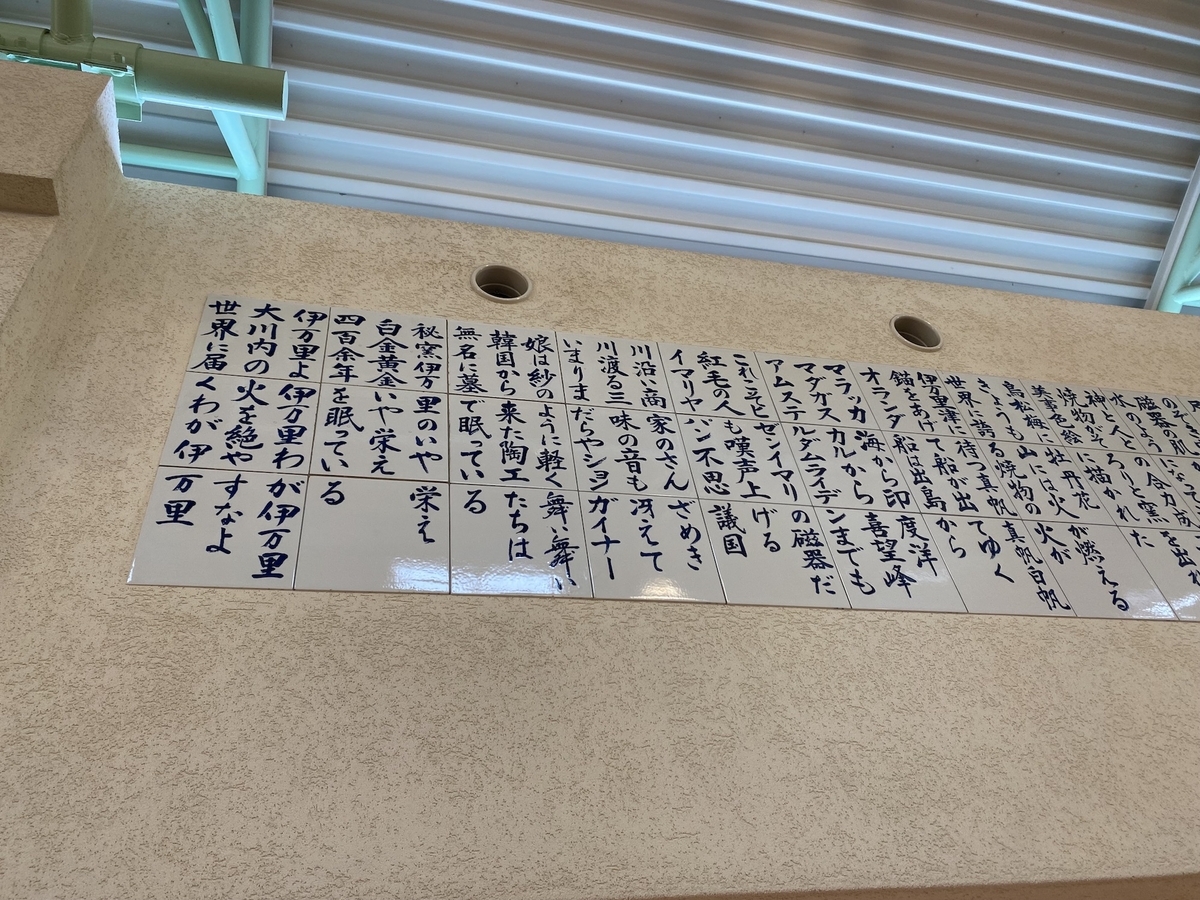 焼物がそろりと窯を出た
美事色絵に描かれた
鳥松梅に牡丹花
きょうも山には火が燃える
世界に誇る焼物の火が
伊万里津に待つ真帆真帆白帆
錨をあげて船が出てゆく
オランダ船は出島から
マラッカ海から印度洋
マダガスカルから喜望峰
アムステルダムライデンまでも
これこそビゼンイマリの磁器だ
紅毛の人も嘆声上げる
イマリヤパン不思議国
川沿い商家のさんざめき
川渡る三味の音も冴えて
いまりまだらやションガイナー
娘は紗のように軽く舞い舞い
韓国から来た陶工たちは
無名に墓で眠っている
秘窯伊万里のいや栄え
白金黄金いや栄え
四百余年を眠っている
伊万里よ伊万里わが伊万里
大川内の火を絶やすなよ
世界に届くわが伊万里